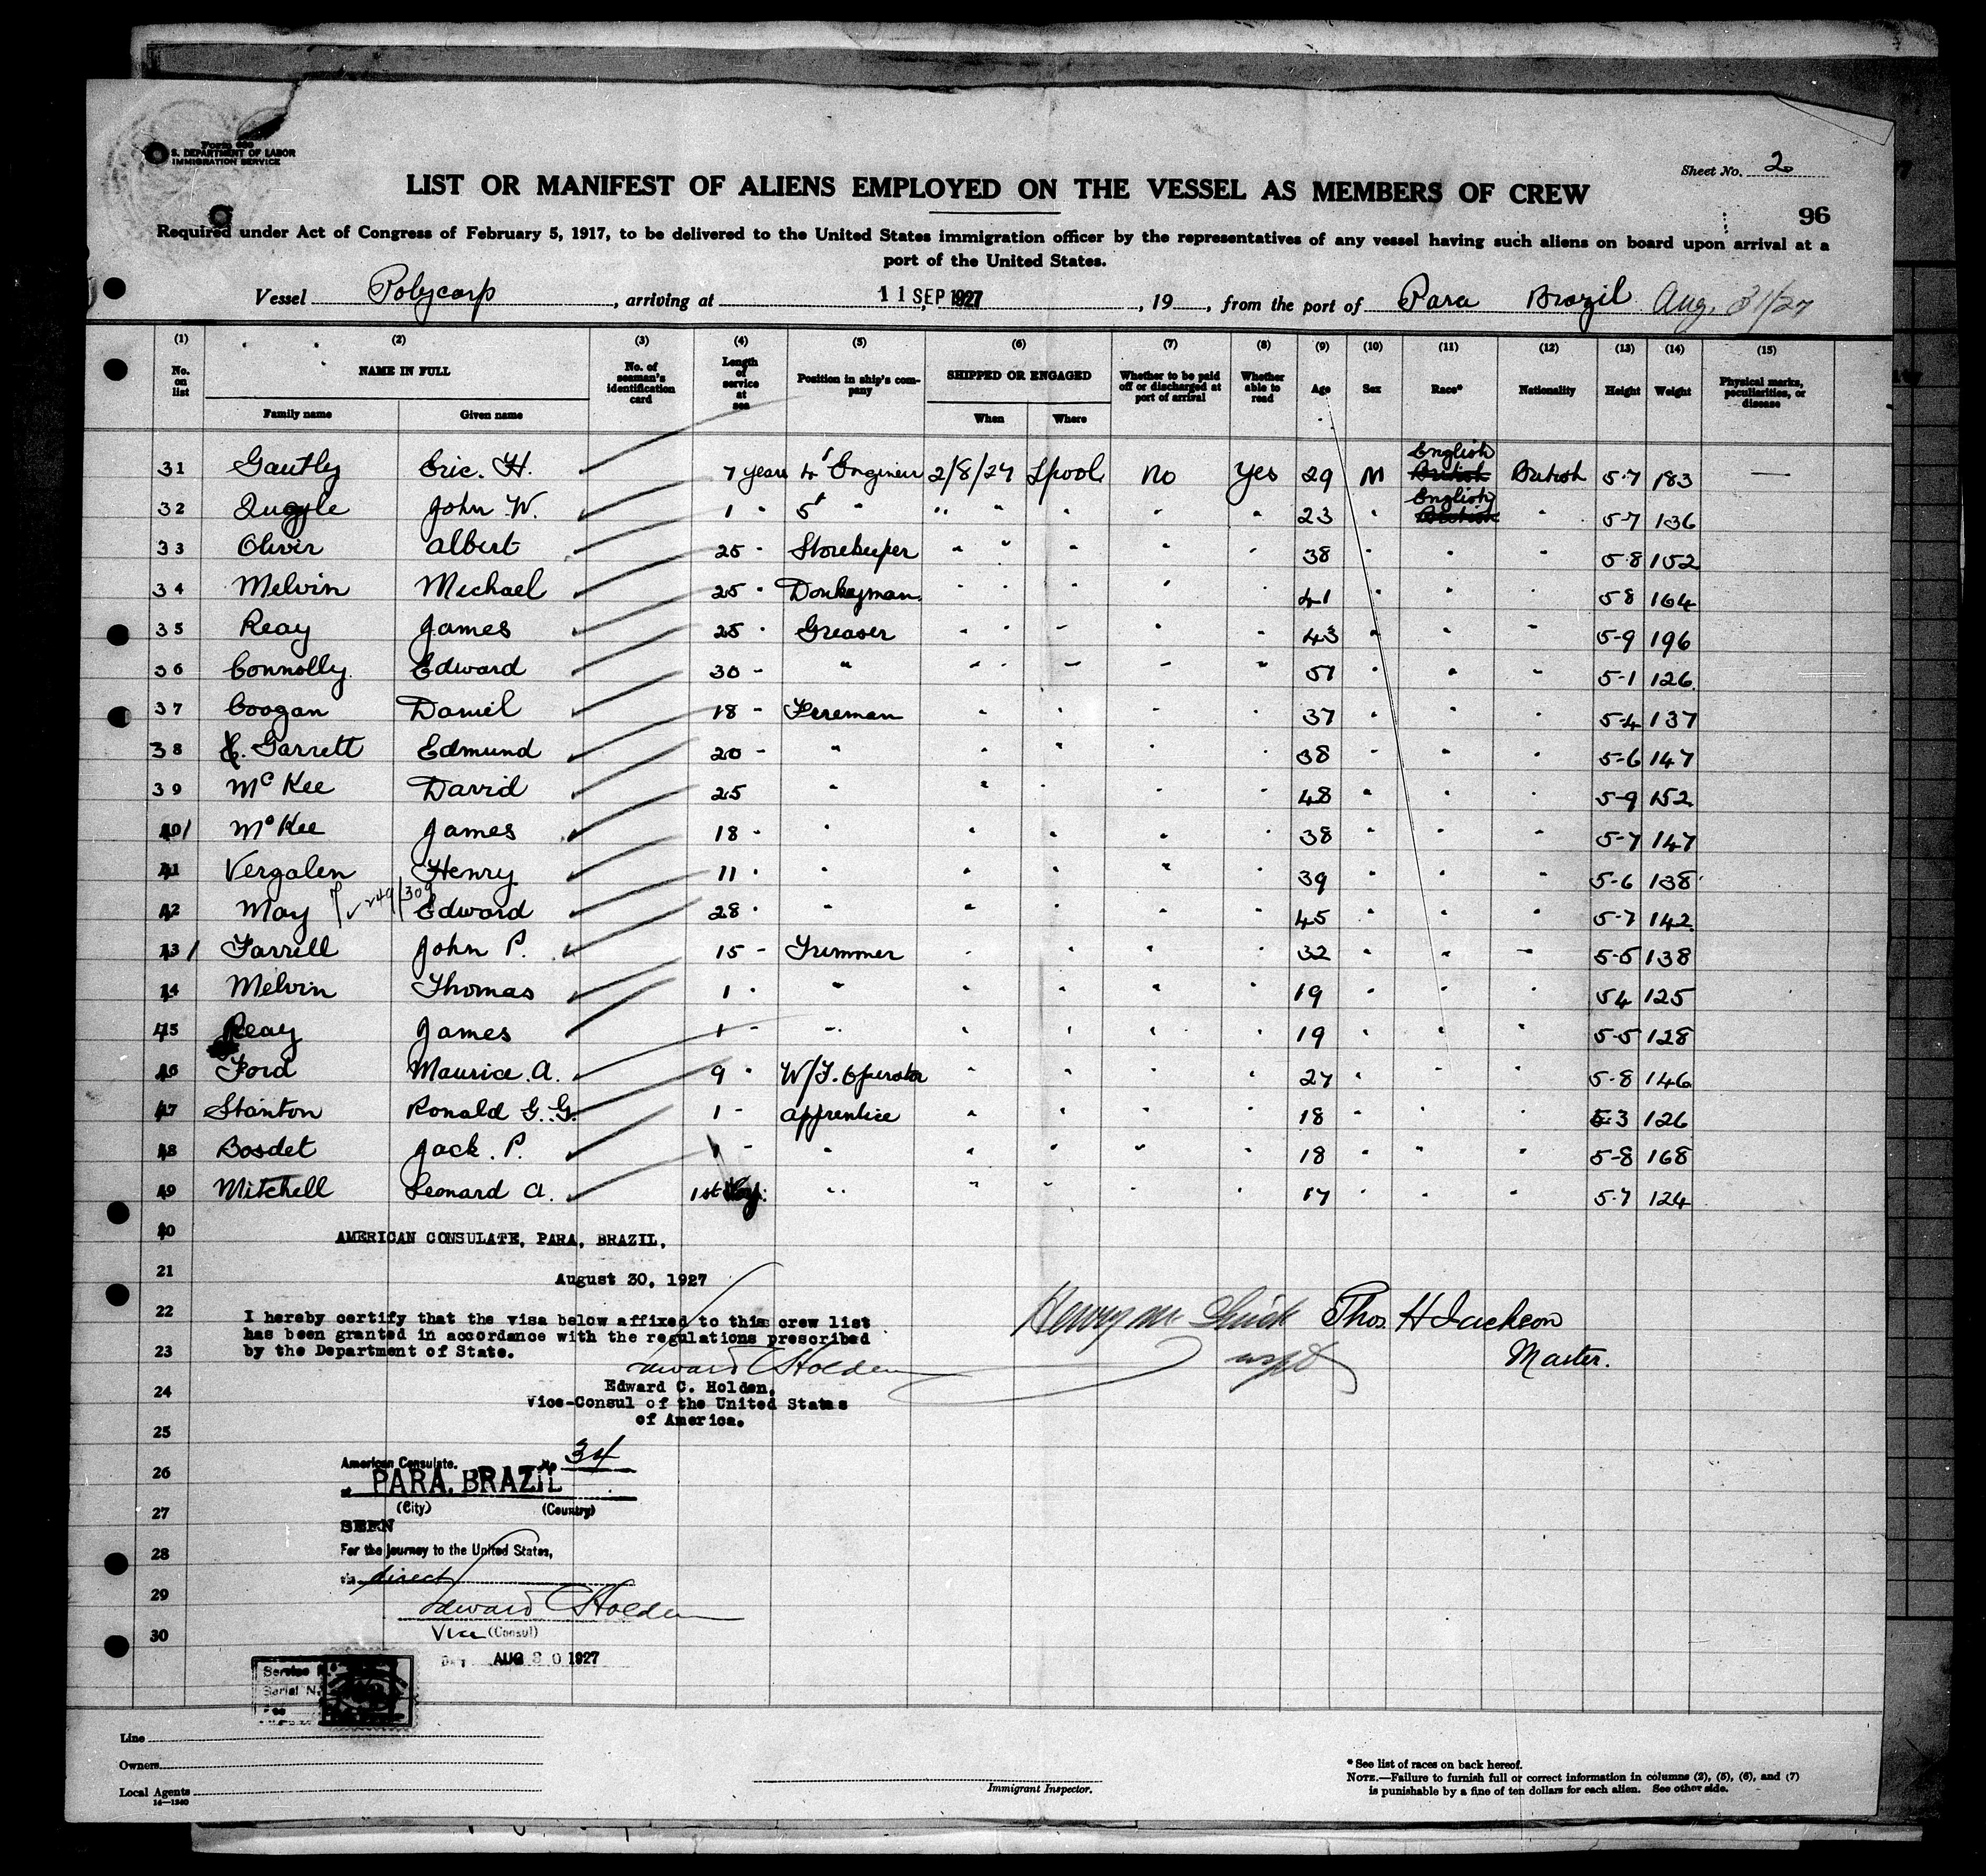 Form 680
S. DEPARTMENT OF LABOR
IMMIGRATION SERVICE
Sheet No. 2
LIST OR MANIFEST OF ALIENS EMPLOYED ON THE VESSEL AS MEMBERS OF CREW
96
Required under Act of Congress of February 5, 1917, to be delivered to the United States immigration officer by the representatives of any vessel having such aliens on board upon arrival at a
port of the United States.
Vessel Polycarp, arriving at 11 SEP 1927, 19, from the port of Para Brazil Aug. 31/27
(1) (2) (3) (4) (5) (6) (7) (8) (9) (10) (11) (12) (13) (14) (15)
No. on list NAME IN FULL No. of seaman's identification card Length of service at sea Position in ship's company SHIPPED OR ENGAGED Whether to be paid off or discharged at port of arrival Whether able to read Age Sex Race* Nationality Height Weight Physical marks, peculiarities, or disease
Family name Given name When Where
31 Gautly Eric. H. 7 years 4 Engineer 2/8/27 Lpool No Yes 29 M English British British 5-7 183 —
32 Quayle John W. 1 " 5 " " " " " " 23 " English British " 5-7 136
33 Oliver Albert 25 " Storekeeper " " " " " 38 " " " 5-8 152
34 Melvin Michael 25 " Donkeyman " " " " " 41 " " " 5 8 164
35 Reay James 25 " Greaser " " " " " 43 " " " 5-9 196
36 Connolly Edward 30 " " " " " " " 51 " " " 5-1 126
37 Coogan Daniel 18 " Fireman " " " " 37 " " " 5-4 137
38 Garrett Edmund 20 " " " " " " 38 " " " 5-6 147
39 McKee David 25 " " " " " 48 " " " 5-9 152
40 McKee James 18 " " " " " " 38 " " " 5-7 147
41 Vergalen Henry 11 " " " " " " 39 " " " 5-6 138
42 May Edward 28 " " " " " " 45 " " " 5-7 142
43 Farrell John P. 15 " Trimmer " " " " 32 " " " 5-5 138
44 Melvin Thomas 1 " " " " " " 19 " " " 5 4 125
45 Reay James 1 " " " " " " 19 " " " 5-5 128
46 Ford Maurice. A. 9 " W/T. Operator " " " " 27 " " " 5-8 146
47 Stanton Ronald G. G. 1 " apprentice " " " " 18 " " " 5-3 126
48 Bosdet Jack. P. 1 " " " " " " 18 " " " 5-8 168
49 Mitchell Leonard A. 1st Voy. " " " " " 17 " " " 5-7 124
AMERICAN CONSULATE, PARA, BRAZIL,
21
August 30, 1927
22
I hereby certify that the visa below affixed to this crew list
has been granted in accordance with the regulations prescribed
by the Department of State.
Thos H Jackson
Master.
23
Edward C Holden
24
Edward C. Holden,
Vice-Consul of the United States
of America.
25
American Consulate. No 34
26
at PARA, BRAZIL
(City) (Country)
27
SEEN
28
For the journey to the United States,
via direct
29
Edward C Holden
30
Vice (Consul)
AUG 30 1927
Service
Serial N
Fee
Line
Owners
Local Agents
14—1240
Immigrant Inspector.
*See list of races on back hereof.
NOTE.—Failure to furnish full or correct information in columns (2), (5), (6), and (7)
is punishable by a fine of ten dollars for each alien. See other side.